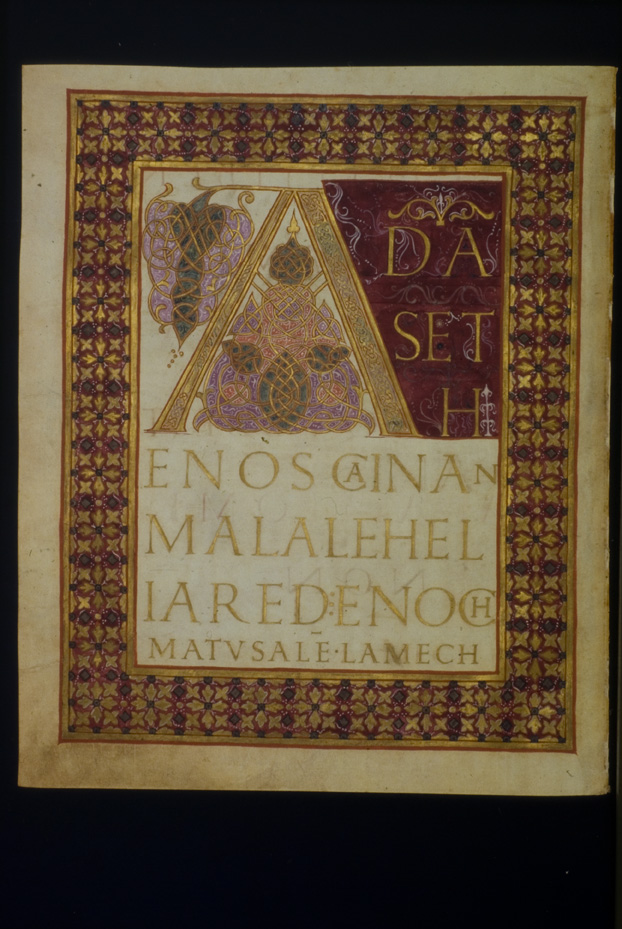 ADA
SET
H
ENOS CAINAN
MALALEHEL
IARED:ENOCH
MATVSALĒ·LAMECH